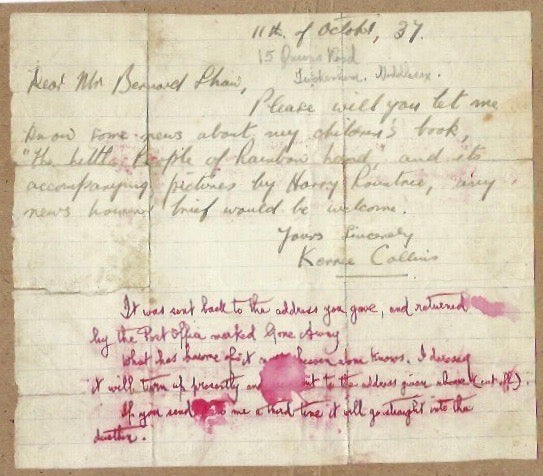 11th of Octobr, 37.
15 Road
Twickenham, Middlesex.
Dear Mr Bernard Shaw,
Please will you let me
know some news about my children's book,
"The little People of Rainbow Land," and its
accompanying pictures by Harry Rountree, any
news however brief would be welcome.
Yours Sincerely
Collins
It was sent back to the address you gave, and returned
by the Post Office marked Gone Away
What has become of it now heaven alone knows. I daresay
it will turn up presently and it to the address given above (cut off).
If you send to me a third time it will go straight into the
dustbin.